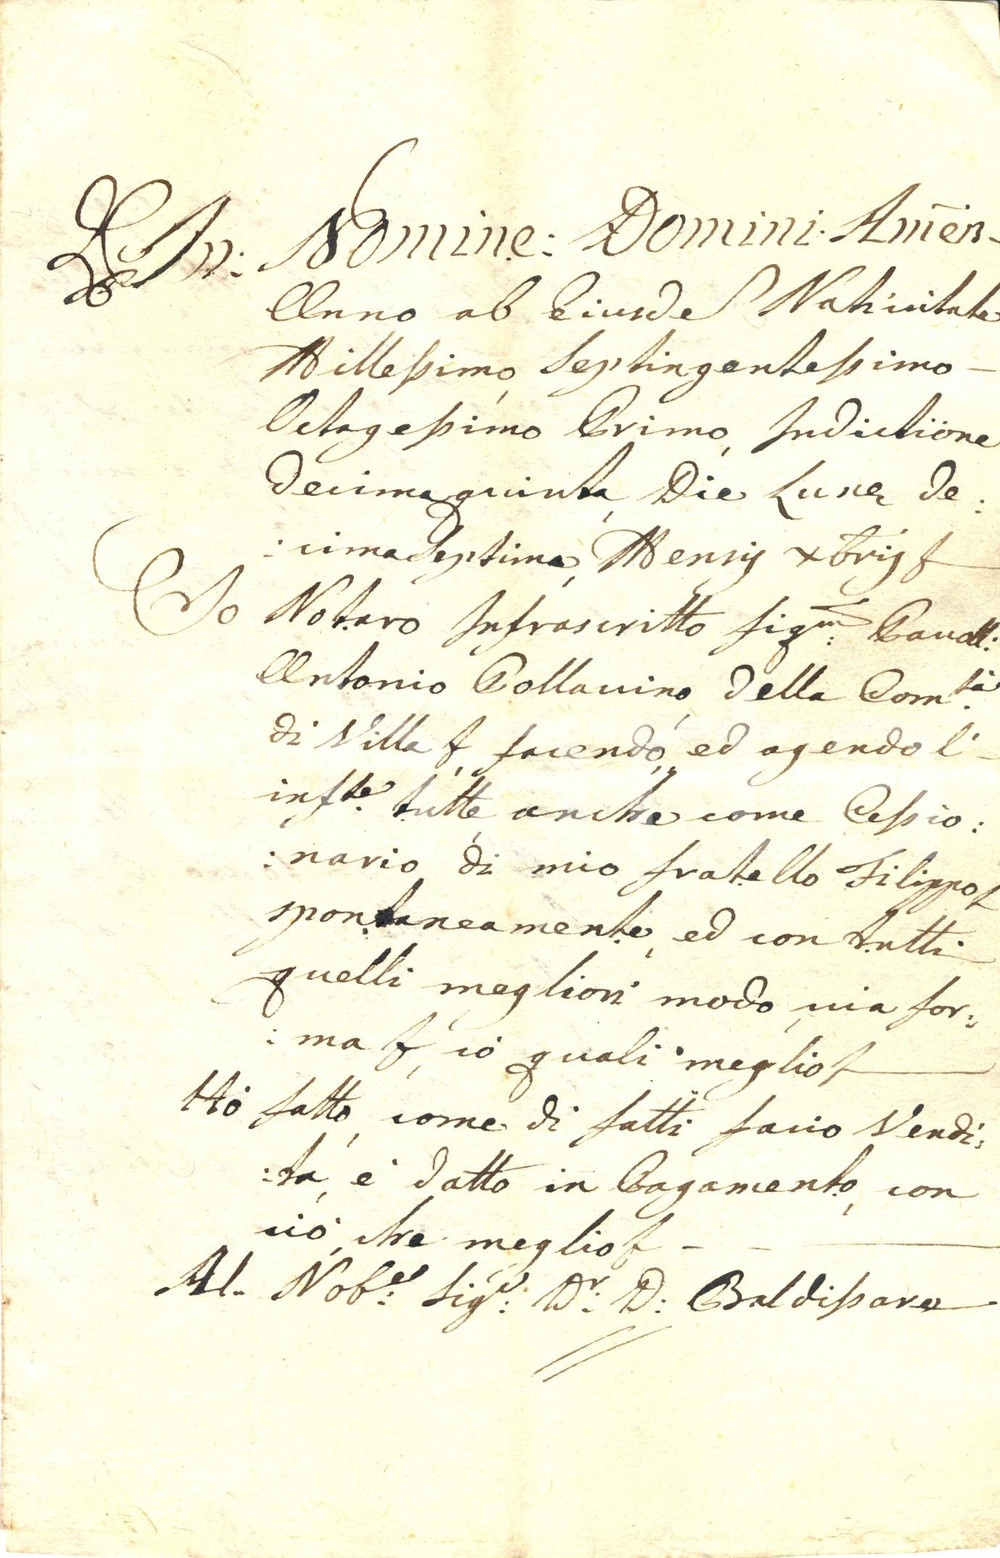 In: Nomine: Domini. Amen-
Anno ab Eiusde Nativitate
Millessimo, Septingentessimo -
Octagessimo Primo, Indictione
decimaquinta, Die Lunę de:
:cimaseptima, Mensis Xbris
Io Notaro Infrascritto Sigm: Cavall:
Antonio Collavino, della Comtà
di Villa f, facendo, ed agendo l'-
infte. tutte anche come Cessio:
:nario di mio fratello Filippo
spontaneamente, ed con tutti
quelli megliori modo, via for:
:ma f, cò quali meglio f
Hò fatto, come di fatti facio Vendi:
:ta, e datto in Pagamento, con
ciò, che meglio f - -
Al. Nob:e Sigr: Dr: D: Baldissare